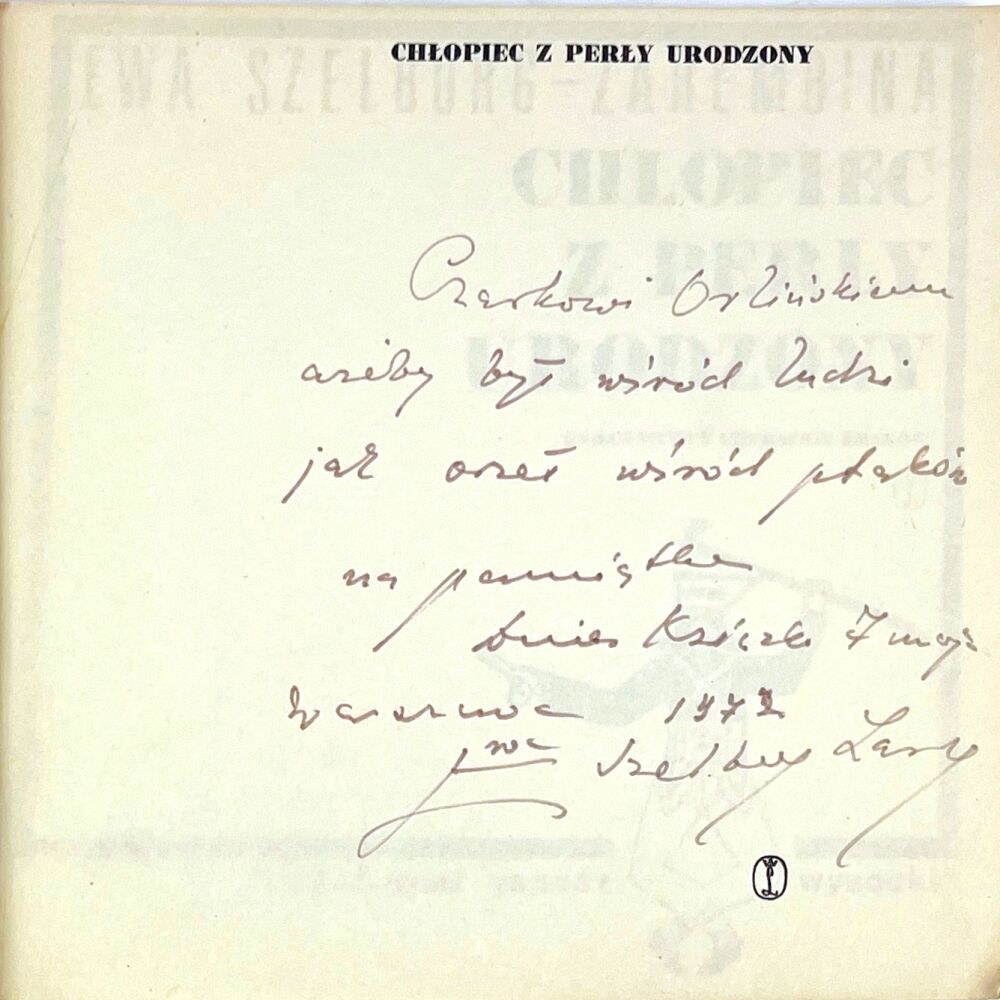 CHŁOPIEC Z PERŁY URODZONY
EWA SZELBURG-ZAREMBINA
CHŁOPIEC
Z PERŁY
URODZONY
Czarkowi Orlińskiemu
ażeby był wśród ludzi
jak orzeł wśród ptaków
na pamiątkę
dnia Książki 7 maja
Warszawa 1972
Ewa Szelburg Zarem